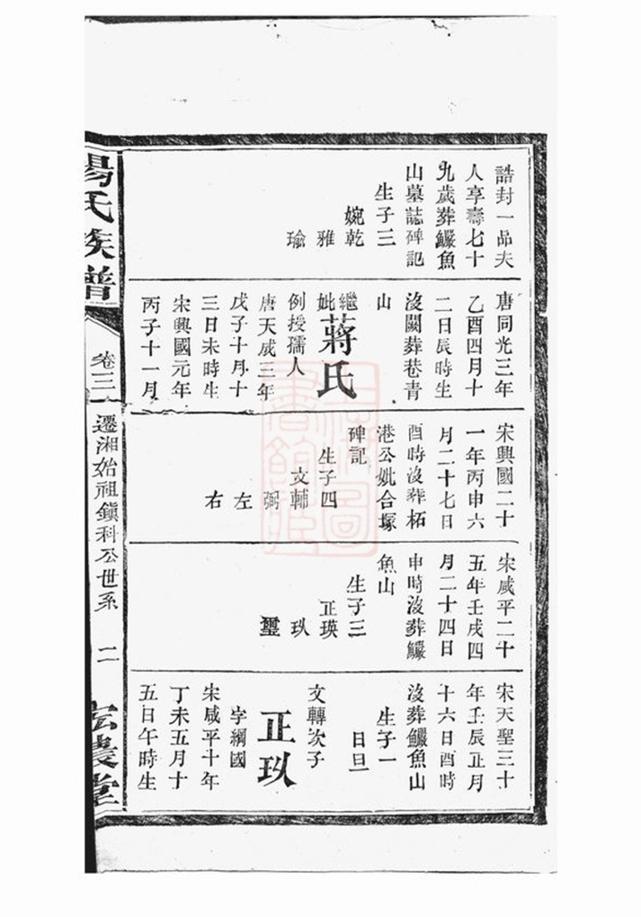 誥封一品夫
人享壽七十
九歲葬鱺魚
山墓誌碑記
生子三
婉乾
雅
瑜
唐同光三年
乙酉四月十
二日辰時生
沒闕葬巷青
山
繼妣蔣氏
例授孺人
唐天成三年
戊子十月十
三日未時生
宋興國元年
丙子十一月
宋興國二十
一年丙申六
月二十七日
酉時沒葬柘
港公妣合塚
碑記
生子四
文輔
弼
左
右
宋咸平二十
五年壬戌四
月二十四日
申時沒葬鱺
魚山
生子三
正瑛
玖
璽
宋天聖三十
年壬辰正月
十六日酉時
沒葬鱺魚山
生子一
日旦
文轉次子
正玖
字綱國
宋咸平十年
丁未五月十
五日午時生
楊氏族譜
卷三
遷湘始祖鎮科公世系
二
宏農堂